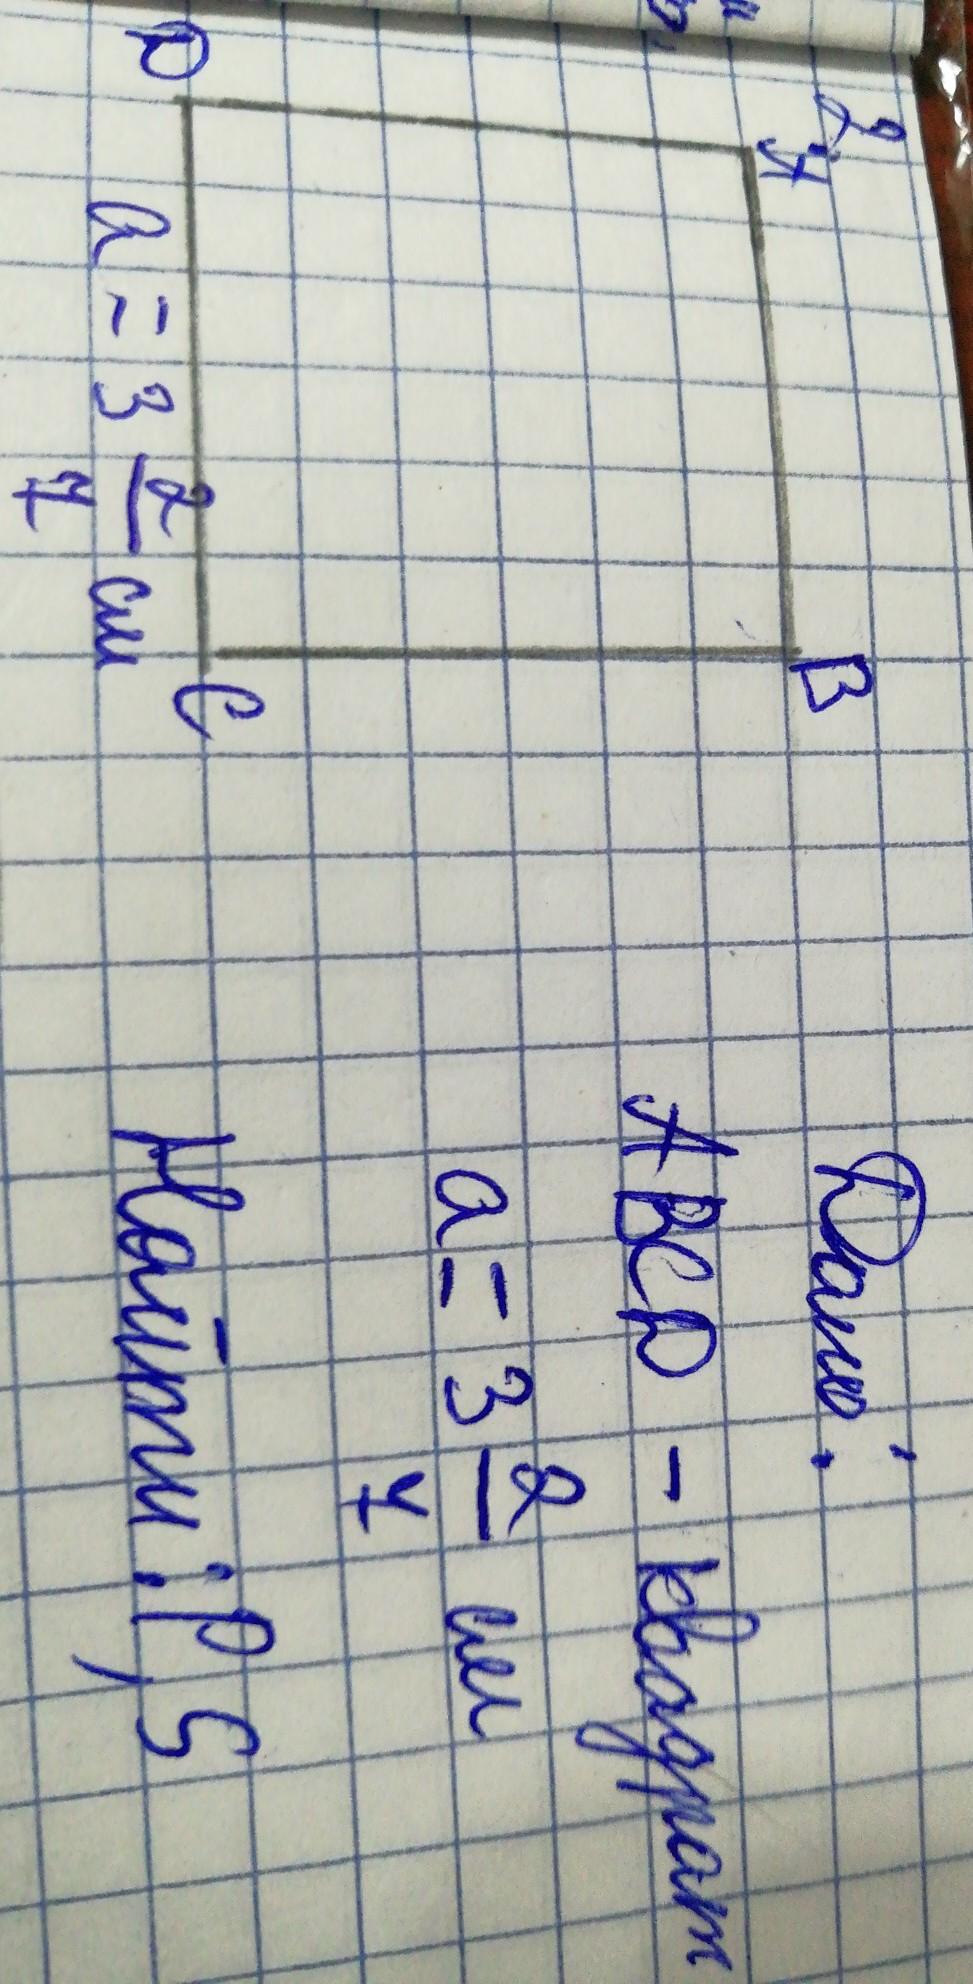 2.
A B
D C
a = 3 2/7 см
Дано:
ABCD – квадрат
a = 3 2/7 см
Найти: P, S